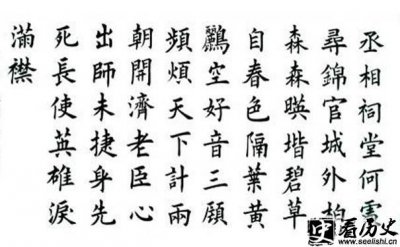 丞相祠堂何處
尋錦官城外柏
森森暎堦碧草
自春色隔葉黃
鸝空好音三顧
頻煩天下計兩
朝開濟老臣心
出師未捷身先
死長使英雄淚
滿襟
看历史
www.seelishi.cn